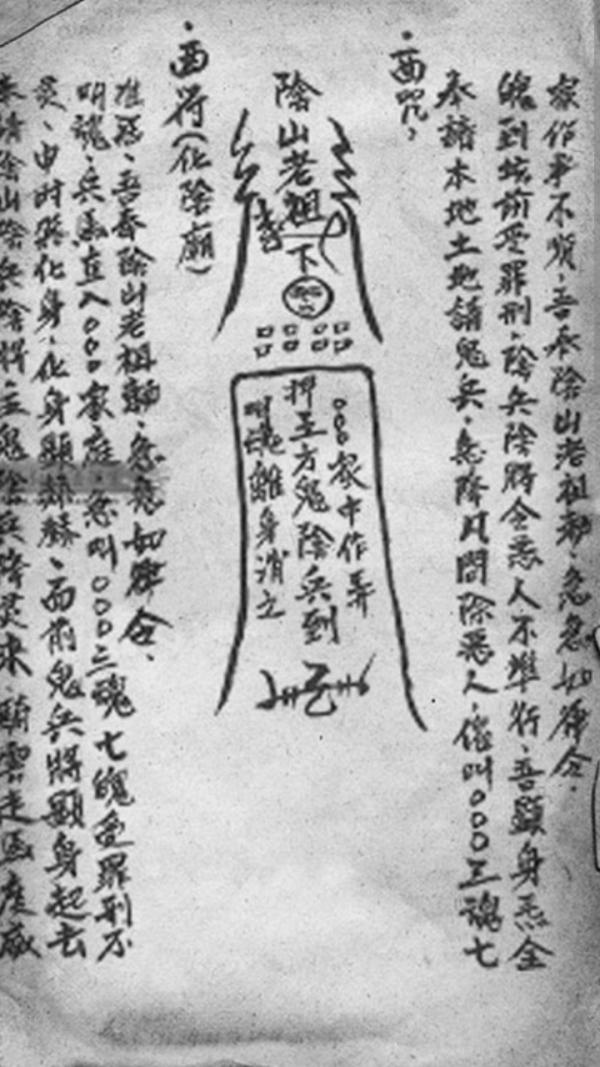 奉請陰山陰兵陰將、五鬼陰兵降灵來、騰雲走馬度
灵、申时與化身、化身顯赫赫、面前鬼兵將顯身起去
叫魂、兵馬直入000家庭、急叫000三魂七魄受罪刑不
推辞、吾奉陰山老祖勅、急急如律令.
·西符(化陰廟)
陰山老祖
下
000家中作弄
押五方鬼陰兵到
叫魂離身消亡
·西咒,
奉請本地土地請鬼兵、急降凡間除惡人、催叫000三魂七
魄到坛前受罪刑、陰兵陰將令惡人不準行、吾顯身惡全
家作事不順、吾奉陰山老祖勅、急急如律令.